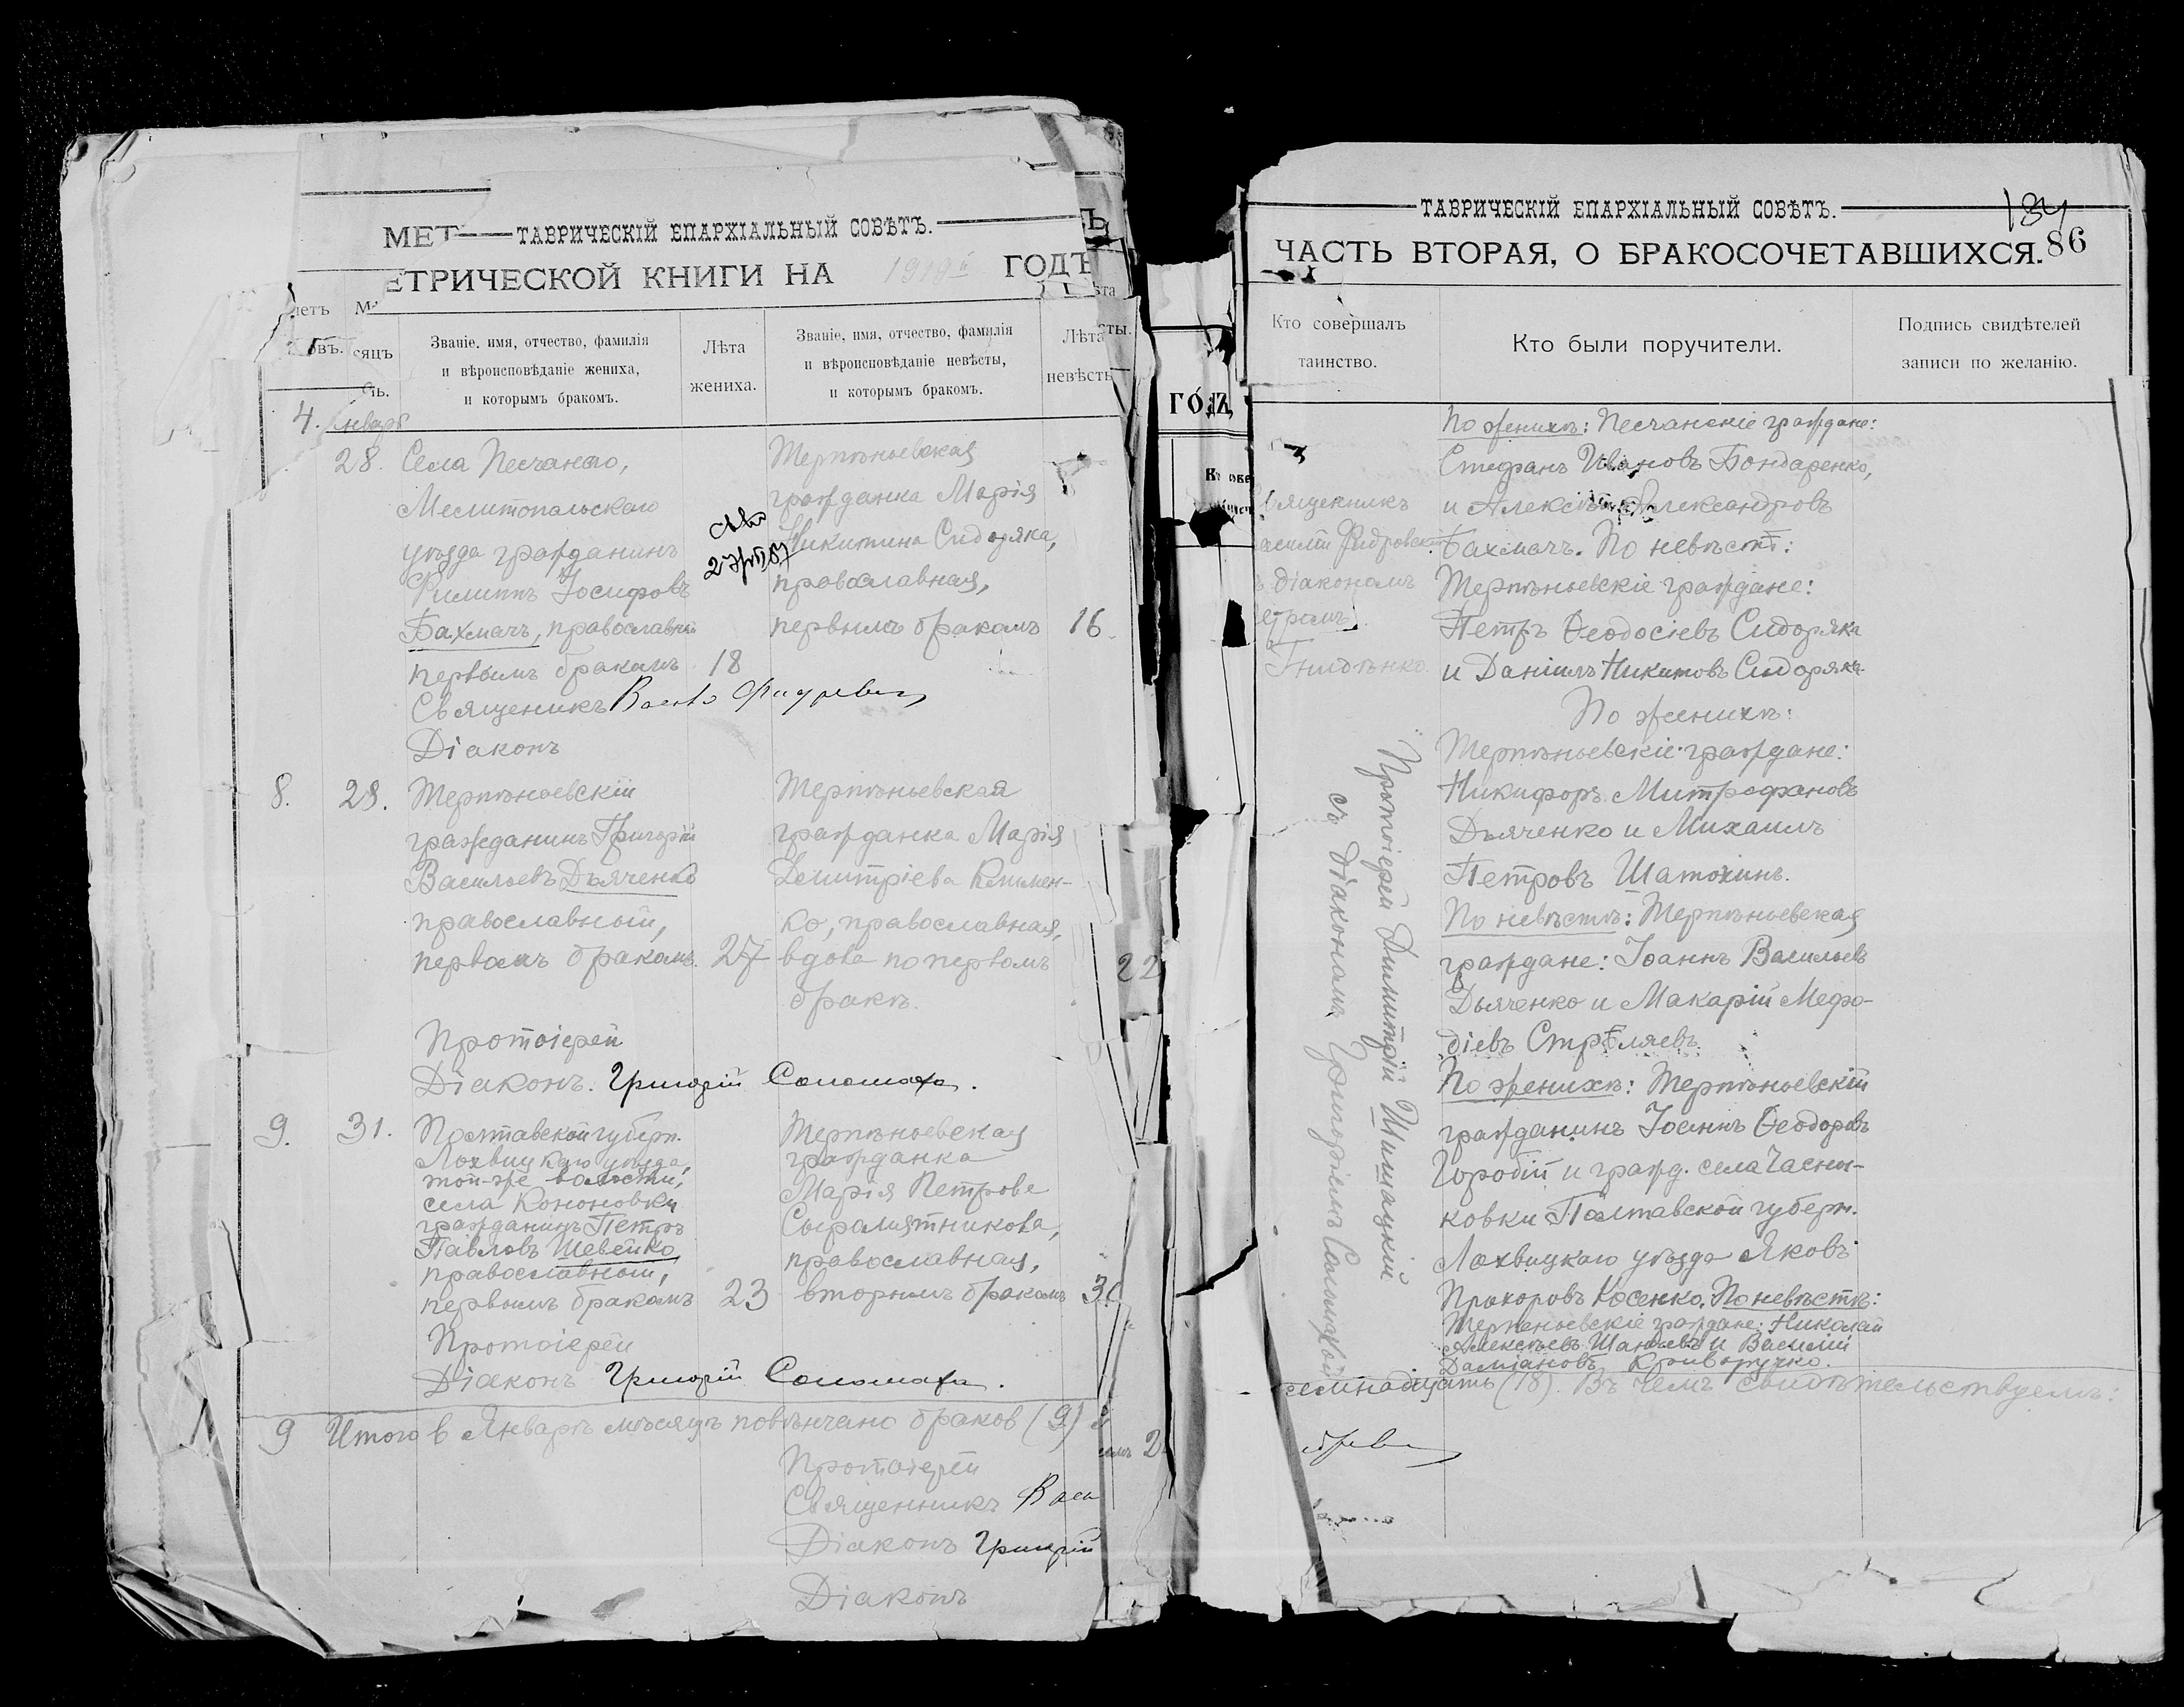 МЕТ
ТАВРИЧЕСКІЙ ЕПАРХІАЛЬНЫЙ СОВѢТЪ.
ЕТРИЧЕСКОЙ КНИГИ НА 1919й ГОДЪ
Званіе, имя, отчество, фамилія
и вѣроисповѣданіе жениха,
и которымъ бракомъ.
Лѣта
жениха.
Званіе, имя, отчество, фамилія
и вѣроисповѣданіе невѣсты,
и которымъ бракомъ.
Лѣта
невѣсты
Январь
28.
Села Песчанаго,
Мелитопальскаго
уѣзда гражданинъ
Филиппъ Іосифовъ
Бахмачъ, православный
первымъ бракомъ
18
Терпѣньевская
гражданка Марія
Никитина Сидоряка,
православная,
первымъ бракомъ
16
Священикъ
Діаконъ
8.
28.
Терпѣньевскій
гражданинъ Григорій
Васильевъ Дьяченко
православный,
первымъ бракомъ
27
Терпѣньевская
гражданка Марія
Димитріева Клымен-
ко, православная,
вдова по первомъ
бракѣ.
22
Протоіерей
Діаконъ. Григорій Соломаха.
9.
31.
Полтавской губерн.
Лохвицкаго уѣзда,
той-же волости,
села Кононовки
гражданинъ Петръ
Павловъ Шевейко
православный,
первымъ бракомъ
23
Терпѣньевская
гражданка
Марія Петрова
Сыромятникова,
православная,
вторымъ бракомъ
Протоіерей
Діаконъ Григорій Соломаха.
9 Итого в Январѣ мѣсяцѣ повѣнчано браков (9)
Протоіерей
Священникъ
Діаконъ Григорій
Діаконъ
ГОДЪ,
ТАВРИЧЕСКІЙ ЕПАРХІАЛЬНЫЙ СОВѢТЪ.
134
ЧАСТЬ ВТОРАЯ, О БРАКОСОЧЕТАВШИХСЯ.
86
Кто совершалъ
таинство.
Кто были поручители.
Подпись свидѣтелей
записи по желанію.
По женихѣ: Песчанскіе граждане:
Стефанъ Ивановъ Бондаренко,
и Алексѣй Александровъ
Бахмачъ. По невѣстѣ:
Терпѣньевскіе граждане:
Петръ Ѳеодосіевъ Сидоряка
и Даніилъ Никитовъ Сидоряка.
По женихѣ:
Терпѣньевскіе граждане:
Никифоръ Митрофановъ
Дьяченко и Михаилъ
Петровъ Шатохинъ.
По невѣстѣ: Терпѣньевская
граждане: Іоаннъ Васильевъ
Дьяченко и Макарій Мефо-
діевъ Стрѣляевъ.
Протоіерей Димитрій Шишацкій
съ діакономъ Григоріемъ Соломахой
По женихѣ: Терпѣньевскій
гражданинъ Іоаннъ Ѳеодоровъ
Городій и гражд. села Часни-
ковки Полтавской губерн.
Лохвицкаго уѣзда Яковъ
Прохоровъ Косенко. По невѣстѣ:
Терпеньевскіе граждане: Николай
Алексѣевъ и Василій
Даміановъ Криворучко.
(18). Въ чемъ свидѣтельствуемъ: